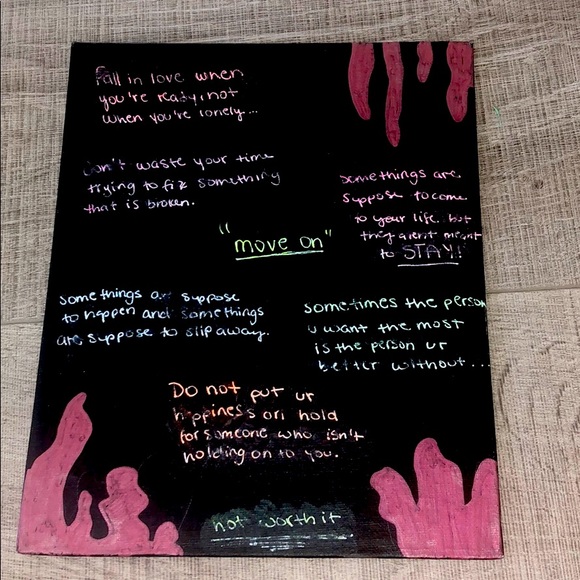 Fall in love when
you're ready, not
when you're lonely...
Don't waste your time
trying to fix something
that is broken.
somethings are
suppose to come
to your life but
they arent meant
to STAY!
"move on"
somethings are suppose
to happen and somethings
are suppose to slip away.
sometimes the person
u want the most
is the person ur
better without...
Do not put ur
happiness on hold
for someone who isn't
holding on to you.
not worth it